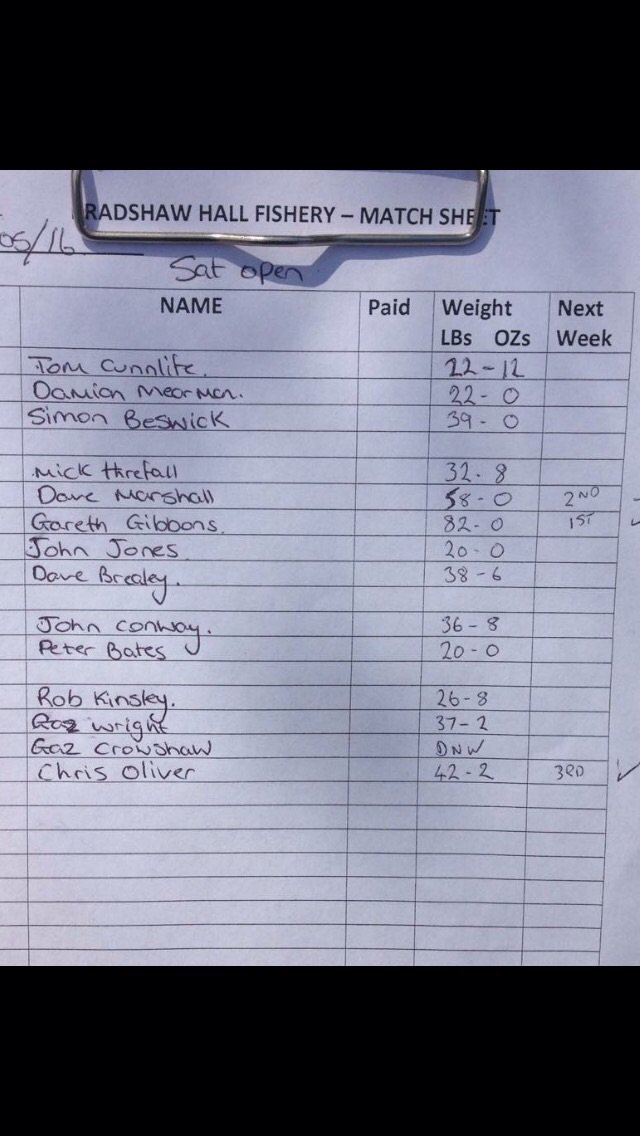 RADSHAW HALL FISHERY – MATCH SHEET
05/16
Sat open
NAME Paid Weight LBs OZs Next Week
Tom Cunnlife. 22-12
Damian Mearman. 22-0
Simon Beswick 39-0
Mick threfall 32-8
Dave Marshall 58-0 2ND
Gareth Gibbons. 82-0 1ST
John Jones 20-0
Dave Brealey. 38-6
John Conway. 36-8
Peter Bates 20-0
Rob Kinsley. 26-8
Gaz wright 37-2
Gaz Crowshaw DNW
Chris Oliver 42-2 3RD